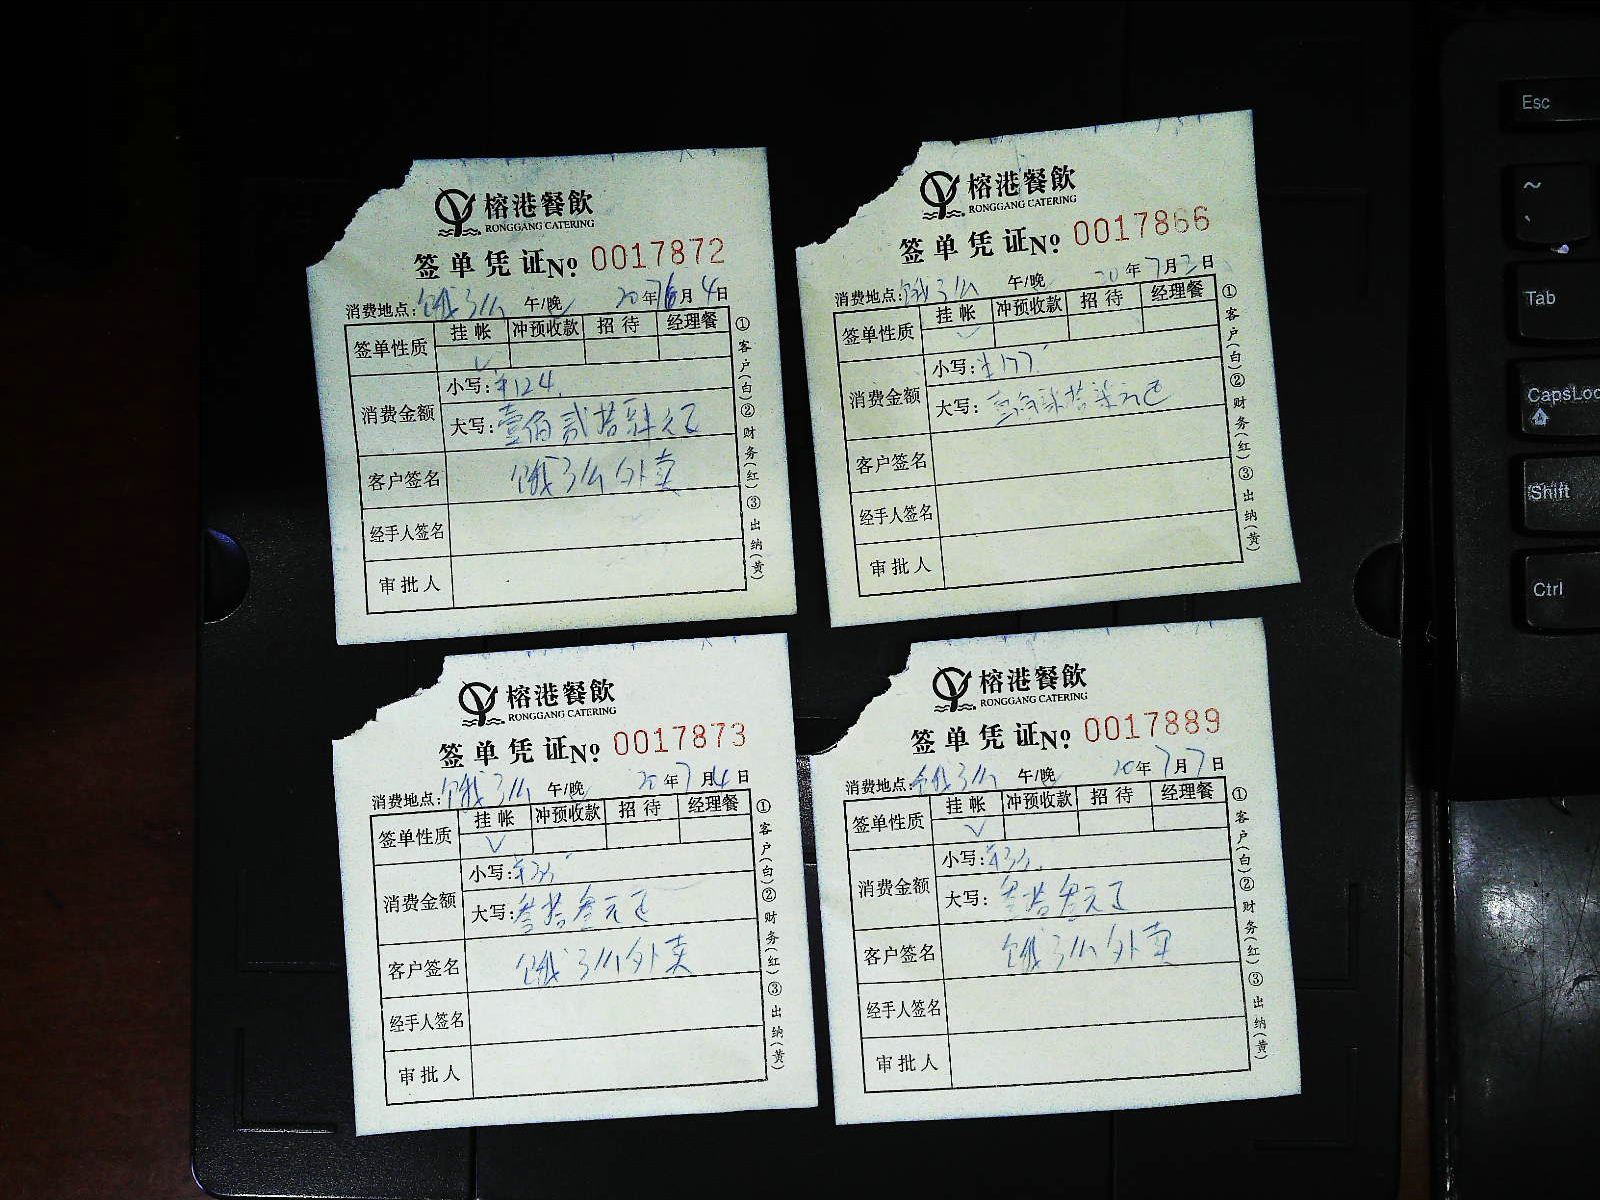 榕港餐飲
RONGGANG CATERING
签单凭证 No 0017872
消费地点:饿了么 午/晚 20年 月4日
签单性质 挂帐 冲预收款 招待 经理餐
✓
消费金额 小写:¥124.
大写:壹佰贰拾肆元正
客户签名 饿了么外卖
经手人签名
审批人
①客户(白)②财务(红)③出纳(黄)
榕港餐飲
RONGGANG CATERING
签单凭证 No 0017866
消费地点:饿了么 午/晚 20年7月3日
签单性质 挂帐 冲预收款 招待 经理餐
✓
消费金额 小写:¥177.
大写:壹佰柒拾柒元正
客户签名
经手人签名
审批人
①客户(白)②财务(红)③出纳(黄)
榕港餐飲
RONGGANG CATERING
签单凭证 No 0017873
消费地点:饿了么 午/晚 20年7月4日
签单性质 挂帐 冲预收款 招待 经理餐
✓
消费金额 小写:¥33.
大写:叁拾叁元正
客户签名 饿了么外卖
经手人签名
审批人
①客户(白)②财务(红)③出纳(黄)
榕港餐飲
RONGGANG CATERING
签单凭证 No 0017889
消费地点:饿了么 午/晚 20年7月7日
签单性质 挂帐 冲预收款 招待 经理餐
✓
消费金额 小写:¥33.
大写:叁拾叁元正
客户签名 饿了么外卖
经手人签名
审批人
①客户(白)②财务(红)③出纳(黄)
Esc
~
Tab
CapsLoc
Shift
Ctrl